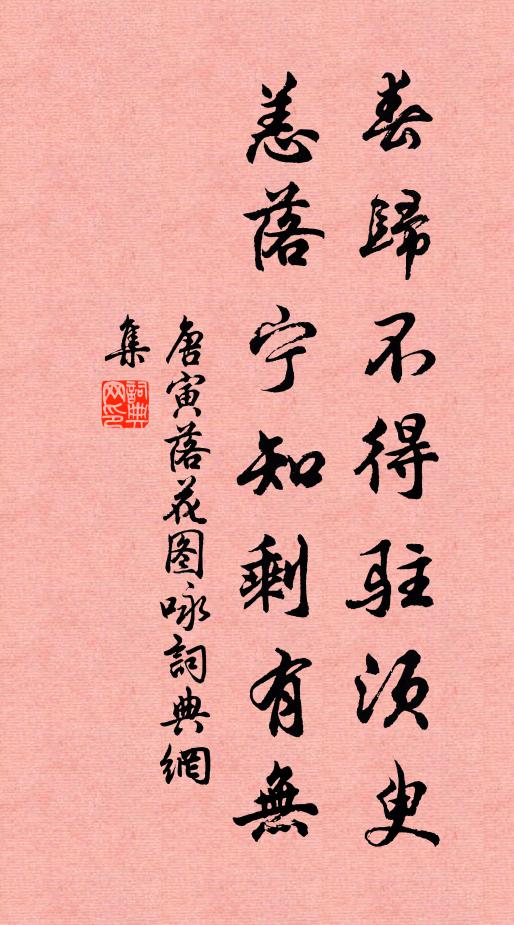 春歸不得駐須臾
恙落宁知剩有無
唐寅落花图咏詞典網
集
詞典網印